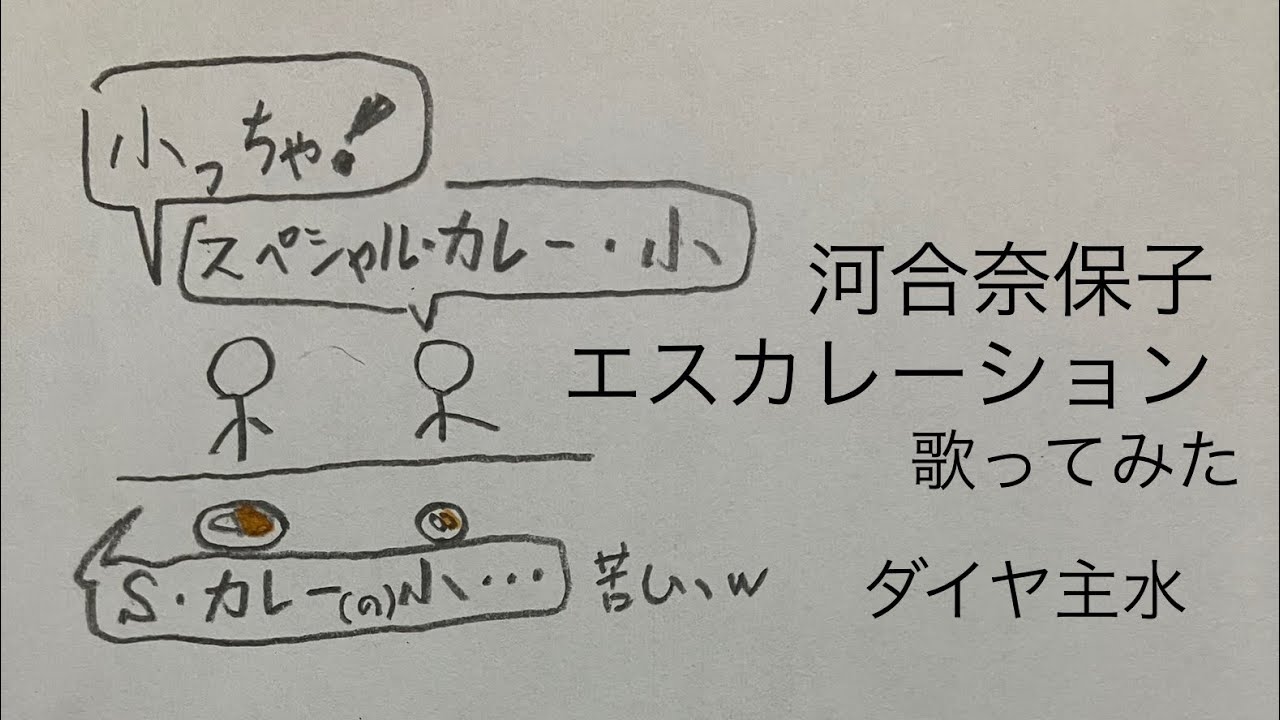 小っちゃ!
スペシャル・カレー・小
河合奈保子
エスカレーション
歌ってみた
S・カレー(の)小・・・
苦しいw
ダイヤ主水